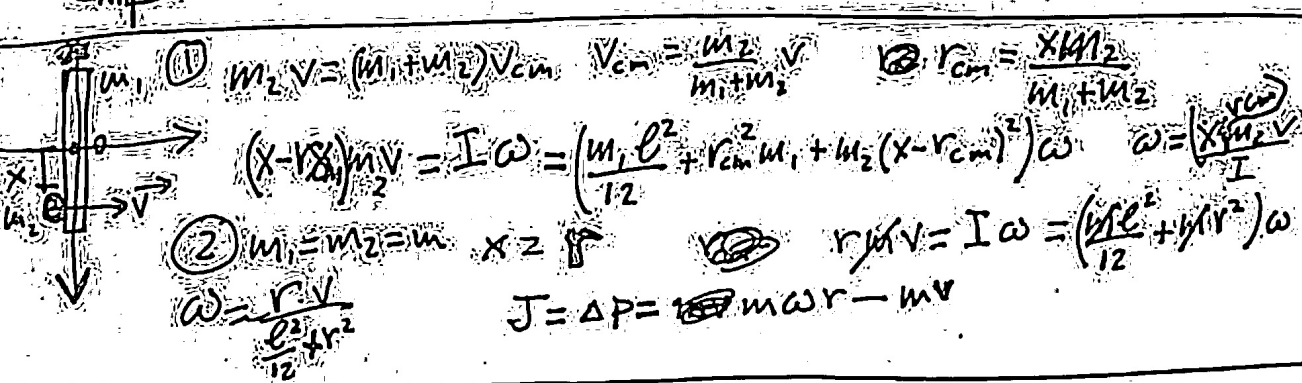 ① m₂v = (m₁+m₂)v_cm   v_cm = m₂/(m₁+m₂) v   r_cm = xm₂/(m₁+m₂)
m₁
0
(x-r_cm)m₂v = Iω = (m₁ℓ²/12 + r_cm² m₁ + m₂(x-r_cm)²)ω   ω = (x-r_cm)m₂v/I
x
m₂ v
② m₁=m₂=m   x = r   rmv = Iω = (mℓ²/12 + mr²)ω
ω = r·v/(ℓ²/12 + r²)   J = Δp = mωr - mv